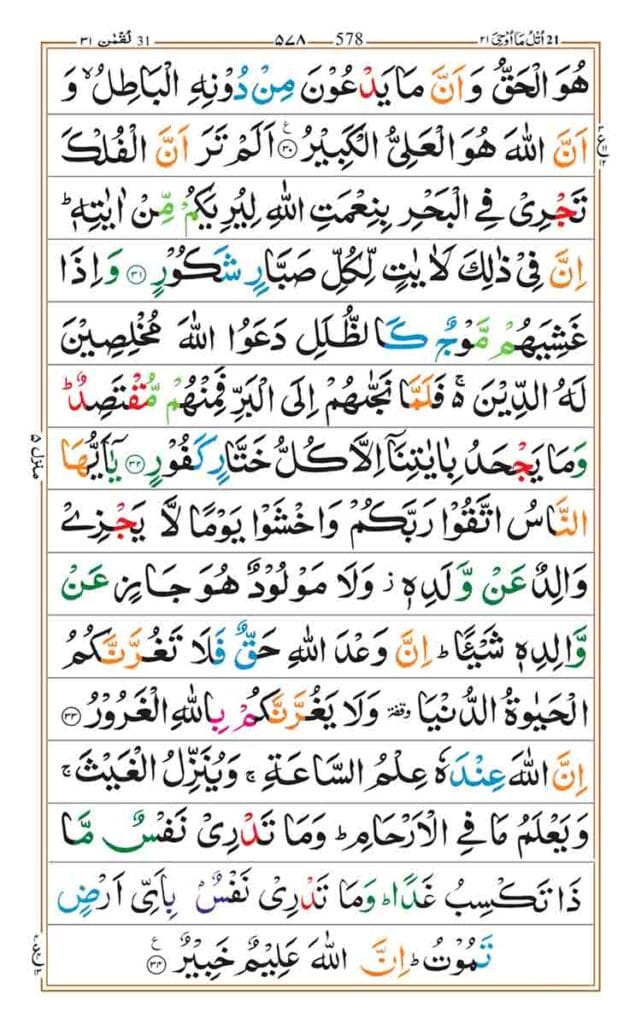 ٢١ اُتْلُ مَآ اُوْحِىَ 21 578 ٥٧٨ 31 لُقْمٰن ٣١
هُوَ الْحَقُّ وَاَنَّ مَا يَدْعُوْنَ مِنْ دُوْنِهِ الْبَاطِلُ ۙ وَ
اَنَّ اللّٰهَ هُوَ الْعَلِىُّ الْكَبِيْرُ ۝٣٠ اَلَمْ تَرَ اَنَّ الْفُلْكَ
تَجْرِىْ فِى الْبَحْرِ بِنِعْمَتِ اللّٰهِ لِيُرِيَكُمْ مِّنْ اٰيٰتِهٖ ؕ
اِنَّ فِىْ ذٰلِكَ لَاٰيٰتٍ لِّكُلِّ صَبَّارٍ شَكُوْرٍ ۝٣١ وَاِذَا
غَشِيَهُمْ مَّوْجٌ كَالظُّلَلِ دَعَوُا اللّٰهَ مُخْلِصِيْنَ
لَهُ الدِّيْنَ ۚ۬ فَلَمَّا نَجّٰىهُمْ اِلَى الْبَرِّ فَمِنْهُمْ مُّقْتَصِدٌ ؕ
وَمَا يَجْحَدُ بِاٰيٰتِنَاۤ اِلَّا كُلُّ خَتَّارٍ كَفُوْرٍ ۝٣٢ يٰۤاَيُّهَا
النَّاسُ اتَّقُوْا رَبَّكُمْ وَاخْشَوْا يَوْمًا لَّا يَجْزِىْ
وَالِدٌ عَنْ وَّلَدِهٖ ؗ وَلَا مَوْلُوْدٌ هُوَ جَازٍ عَنْ
وَّالِدِهٖ شَيْئًا ؕ اِنَّ وَعْدَ اللّٰهِ حَقٌّ فَلَا تَغُرَّنَّكُمُ
الْحَيٰوةُ الدُّنْيَا وقفة وَلَا يَغُرَّنَّكُمْ بِاللّٰهِ الْغَرُوْرُ ۝٣٣
اِنَّ اللّٰهَ عِنْدَهٗ عِلْمُ السَّاعَةِ ۚ وَيُنَزِّلُ الْغَيْثَ ۚ
وَيَعْلَمُ مَا فِى الْاَرْحَامِ ؕ وَمَا تَدْرِىْ نَفْسٌ مَّا
ذَا تَكْسِبُ غَدًا ؕ وَمَا تَدْرِىْ نَفْسٌۢ بِاَىِّ اَرْضٍ
تَمُوْتُ ؕ اِنَّ اللّٰهَ عَلِيْمٌ خَبِيْرٌ ۝٣٤
منزل ٥